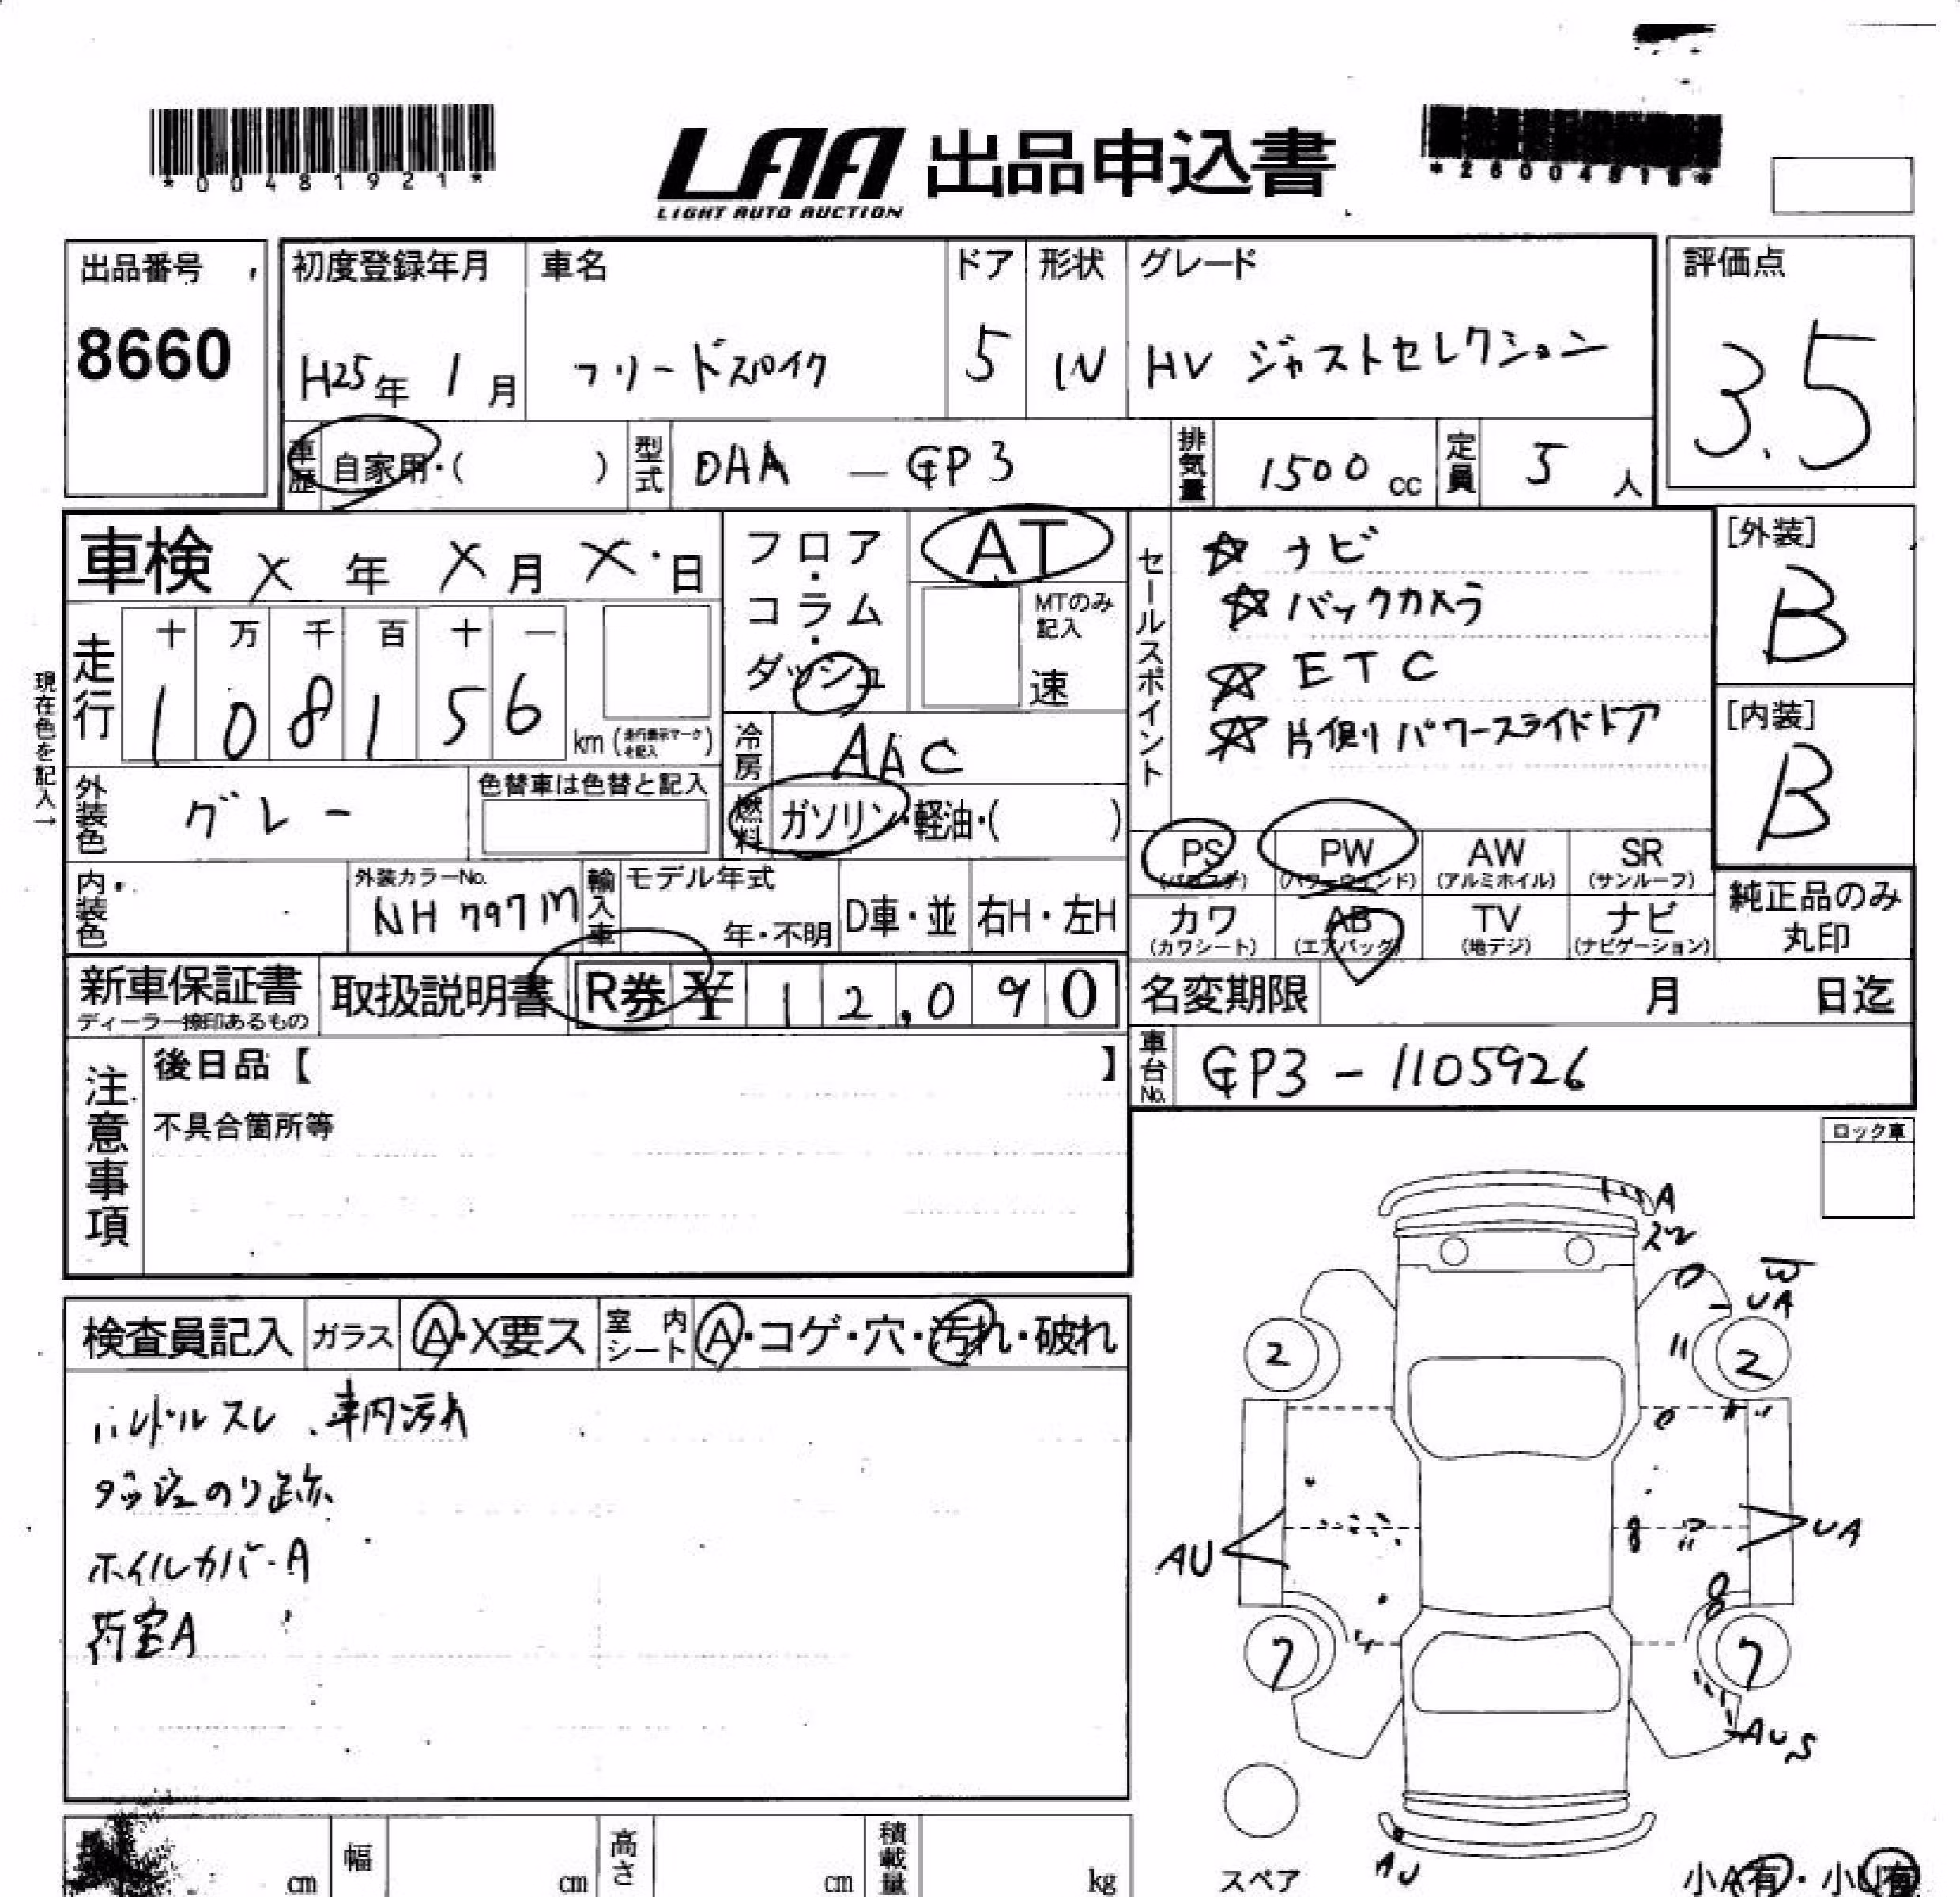 *00481921*
LAA 出品申込書
LIGHT AUTO AUCTION
出品番号
8660
初度登録年月 車名 ドア 形状 グレード
H25年 1月 フリードスパイク 5 HV ジャストセレクション
評価点
3.5
車歴 自家用・( ) 型式 DAA - GP3 排気量 1500 cc 定員 5 人
車検 X 年 X 月 X 日
フロア・コラム・ダッシュ
AT
MTのみ記入
速
セールスポイント
☆ ナビ
☆ バックカメラ
☆ ETC
☆ 片側パワースライドドア
[外装]
B
[内装]
B
現在色を記入→
走行
十 万 千 百 十 一
1 0 8 1 5 6 km (走行表示マークを記入)
冷房 AAC
外装色 グレー
色替車は色替と記入
燃料 ガソリン・軽油・( )
PS (パワステ) PW (パワーウィンド) AW (アルミホイル) SR (サンルーフ)
カワ (カワシート) AB (エアバッグ) TV (地デジ) ナビ (ナビゲーション)
純正品のみ丸印
内装色
外装カラーNo.
NH797M
輸入車 モデル年式
年・不明 D車・並 右H・左H
新車保証書
ディーラー捺印あるもの
取扱説明書 R券 ¥ 12,090
名変期限 月 日迄
車台No. GP3-1105926
注意事項
後日品【 】
不具合箇所等
ロック車
A
W
UA
2 2
AU UA
7 7
AUS
AU
スペア
小A有・小U有
検査員記入 ガラス A・X要ス 室内シート A・コゲ・穴・汚れ・破れ
ハンドルスレ、車内汚れ
ダッシュのり跡
ホイルカバーA
荷室A
cm 幅 cm 高さ cm 積載量 kg